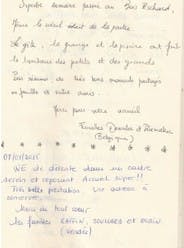 Superbe semaine passée au Bois Richard,
Même le soleil était de la partie.
Le gîte, la grange et la piscine ont fait
le bonheur des petits et des grands.
Que de très bons moments partagés
en famille et entre amis.
Merci pour votre accueil
Familles et
(Belgique)
WE de détente dans un cadre
serein et reposant. Accueil super!!
Très belle prestation. Une adresse à
conserver.
Merci de tout cœur
Les familles
(Vendée)